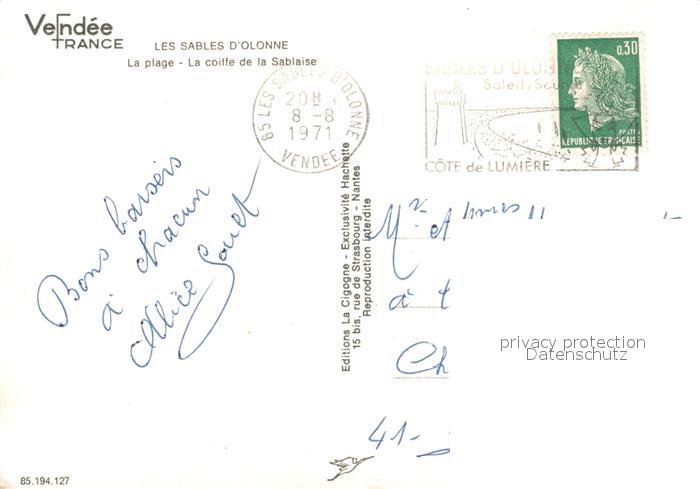 Vendée
FRANCE
LES SABLES D'OLONNE
La plage - La coiffe de la Sablaise
85 LES SABLES D'OLONNE
20H
8 -8
1971
VENDEE
SABLES D'OLON
Soleil, Sou
CÔTE de LUMIÈRE
0,30
POSTES
REPUBLIQUE FRANÇAISE
Bons baisers
à chacun
Alice
Editions La Cigogne - Exclusivité Hachette
15 bis, rue de Strasbourg - Nantes
Reproduction interdite
Mr
à
Ch
41-
privacy protection
Datenschutz
85.194.127